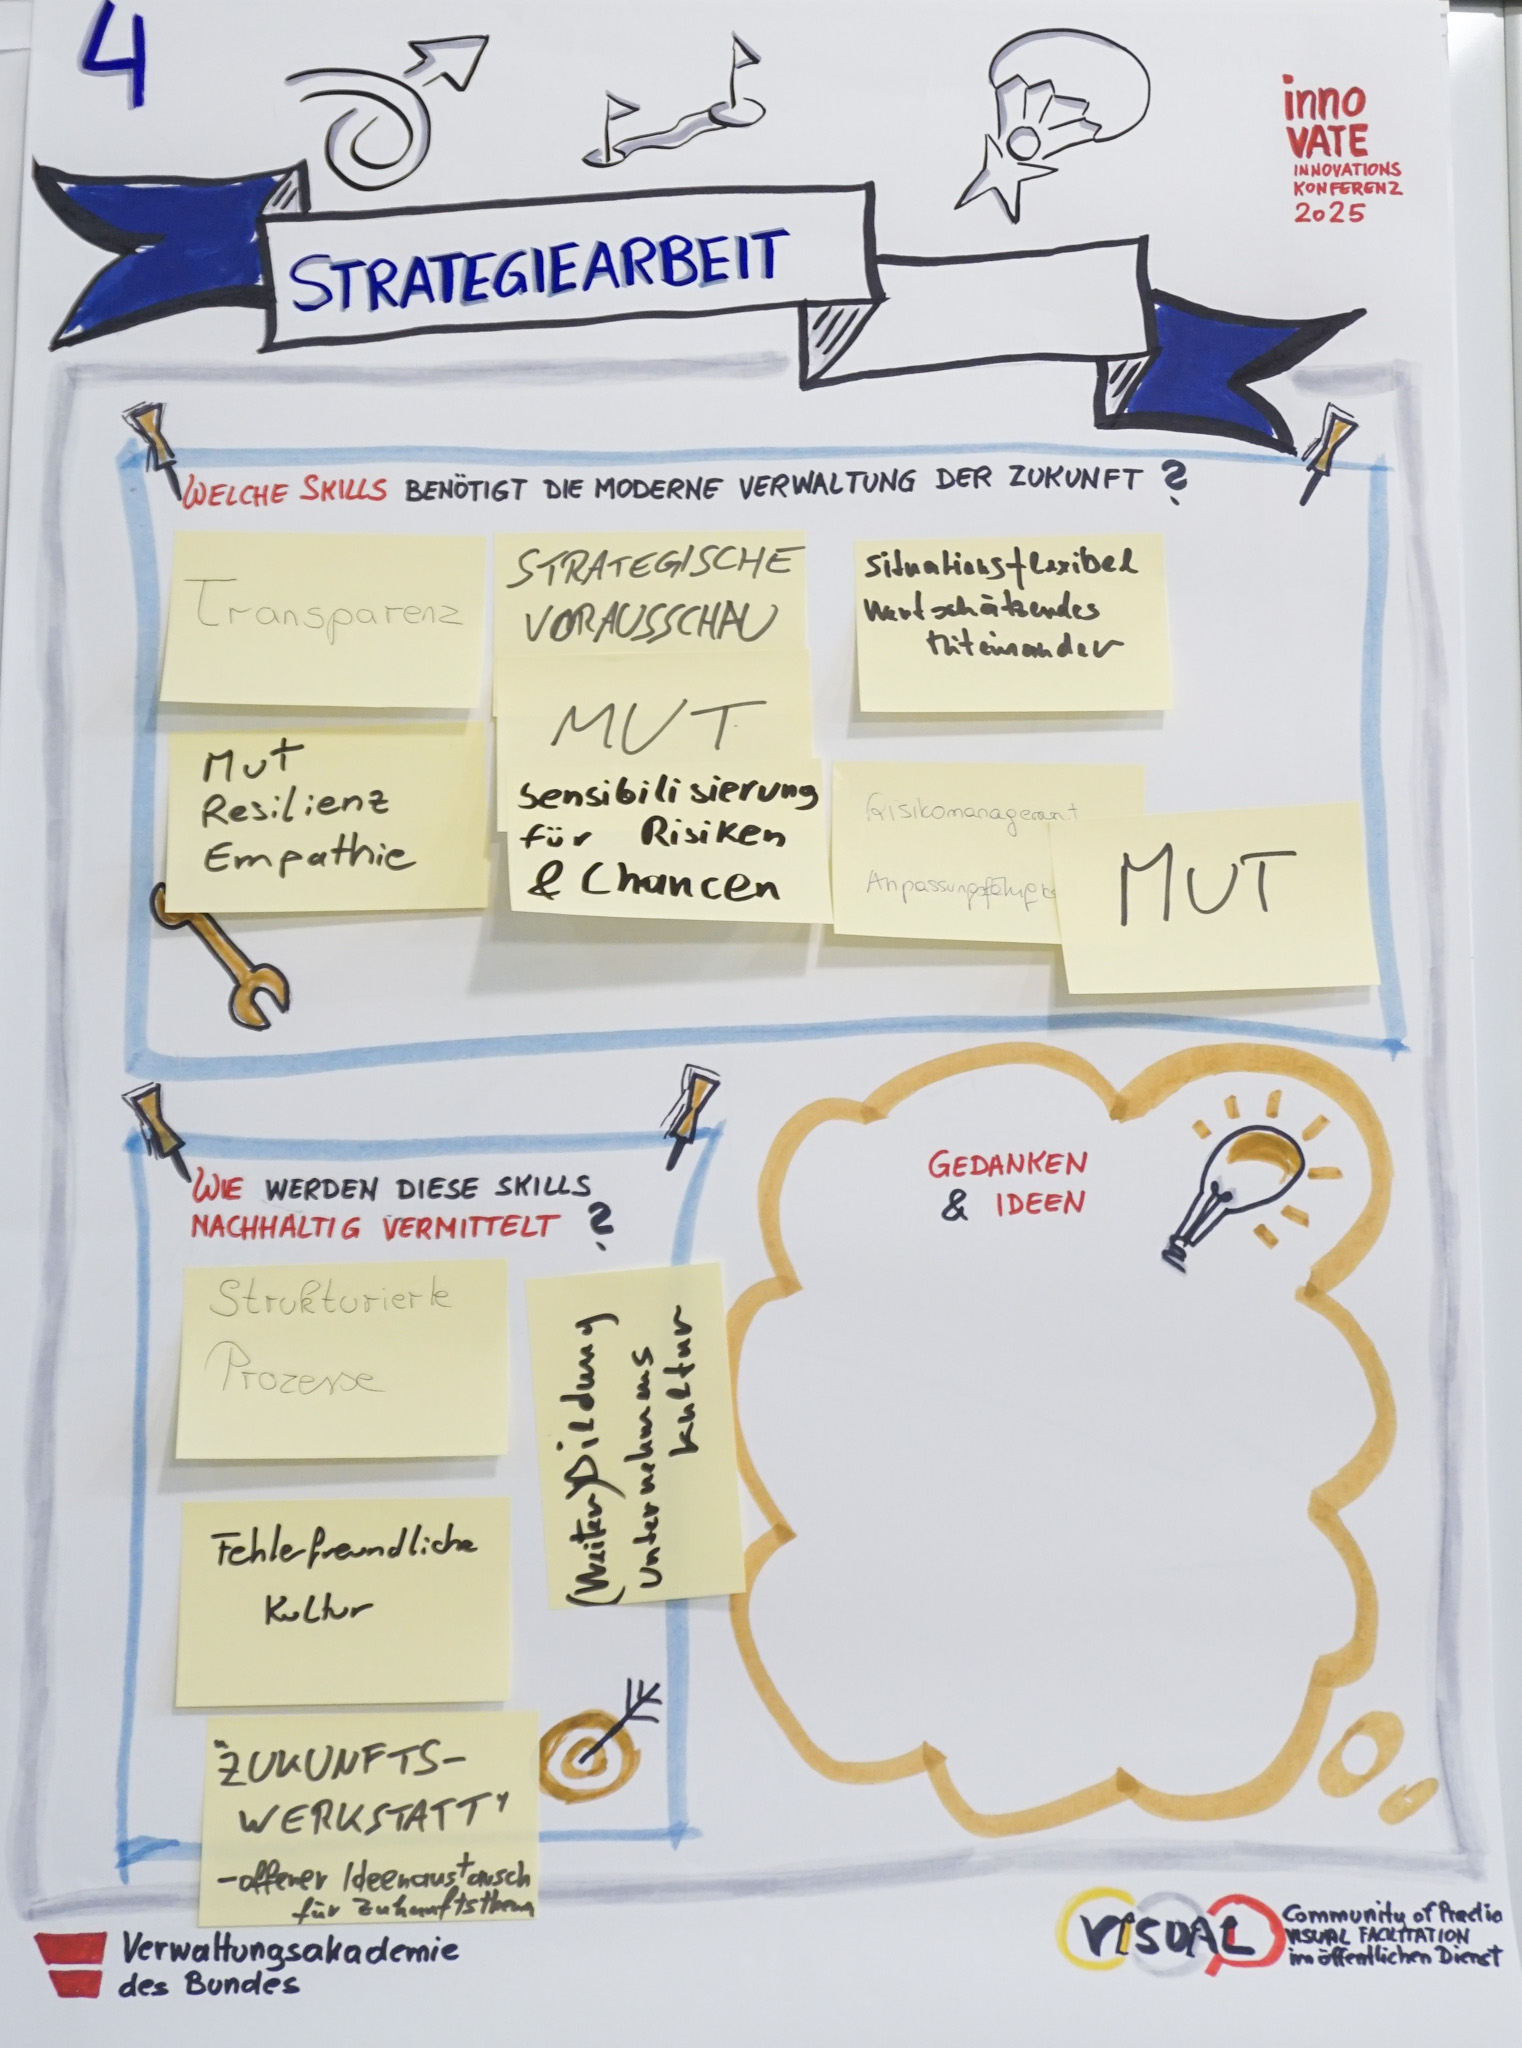 4
inno
VATE
INNOVATIONS
KONFERENZ
2025
STRATEGIEARBEIT
WELCHE SKILLS BENÖTIGT DIE MODERNE VERWALTUNG DER ZUKUNFT ?
Transparenz
STRATEGISCHE
VORAUSSCHAU
situationsflexibel
Wertschätzendes
Miteinander
Mut
Resilienz
Empathie
MUT
Sensibilisierung
für Risiken
& Chancen
Risikomanagement
MUT
WIE WERDEN DIESE SKILLS
NACHHALTIG VERMITTELT ?
Strukturierte
Prozesse
(Weiter)Bildung
Unternehmens
kultur
Fehlerfreundliche
Kultur
"ZUKUNFTS-
WERKSTATT"
- offener Ideenaustausch
für Zukunftsthem
GEDANKEN
& IDEEN
Verwaltungsakademie
des Bundes
VISUAL
Community of Practice
VISUAL FACILITATION
im öffentlichen Dienst